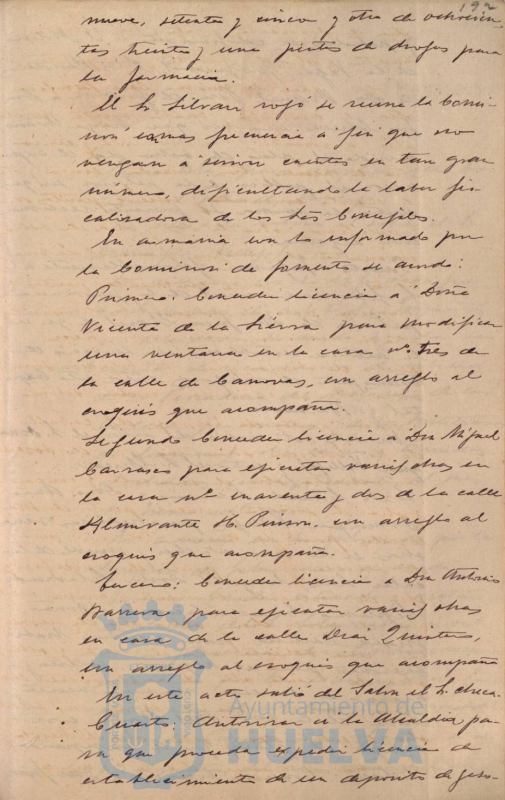 192
nueve, setenta y cinco y otra de ochocien-
tas treinta y una pesetas de drogas para
la farmacia.
El Sr Silvan rogó se reuna la Comi-
sion con mas frecuencia á fin que no
vengan á sesion cuentas en tan gran
número, dificultando la labor fis-
calizadora de los Srs Concejales.
En armonia con lo informado por
la Comision de fomento se acordó:
Primero: Conceder licencia á Doña
Vicenta de la Sierra para modificar
una ventana en la casa nº tres de
la calle de Canovas, con arreglo al
croquis que acompaña.
Segundo Conceder licencia a Don Miguel
Carrasco para ejecutar varias obras en
la casa nº cuarenta y dos de la calle
Almirante H. Pinzon, con arreglo al
croquis que acompaña.
Tercero: Conceder licencia a Don Antonio
Barrera para ejecutar varias obras
en casa de la calle Diaz Quintero,
con arreglo al croquis que acompaña
En este acto salió del Salon el Sr
Cuarto: Autorizar a la Alcaldia pa-
ra que proceda expedir licencia de
establecimiento de un deposito de gaso-
Ayuntamiento de
HUELVA